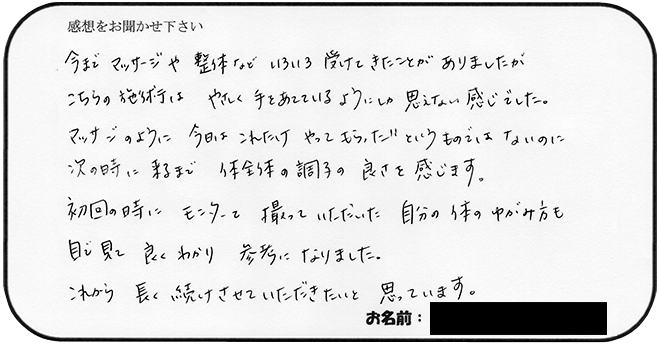 感想をお聞かせ下さい
今まで マッサージや 整体など いろいろ 受けてきたことが ありましたが
こちらの 施術は やさしく 手をあてているようにしか 思えない 感じでした。
マッサージのように 今日は これだけ やってもらった!! というものではないのに
次の時に 来るまで 体全体の 調子の 良さを 感じます。
初回の時に モニターで 撮っていただいた 自分の 体の ゆがみ方も
目で見て 良くわかり 参考になりました。
これから 長く 続けさせていただきたいと 思っています。
お名前：